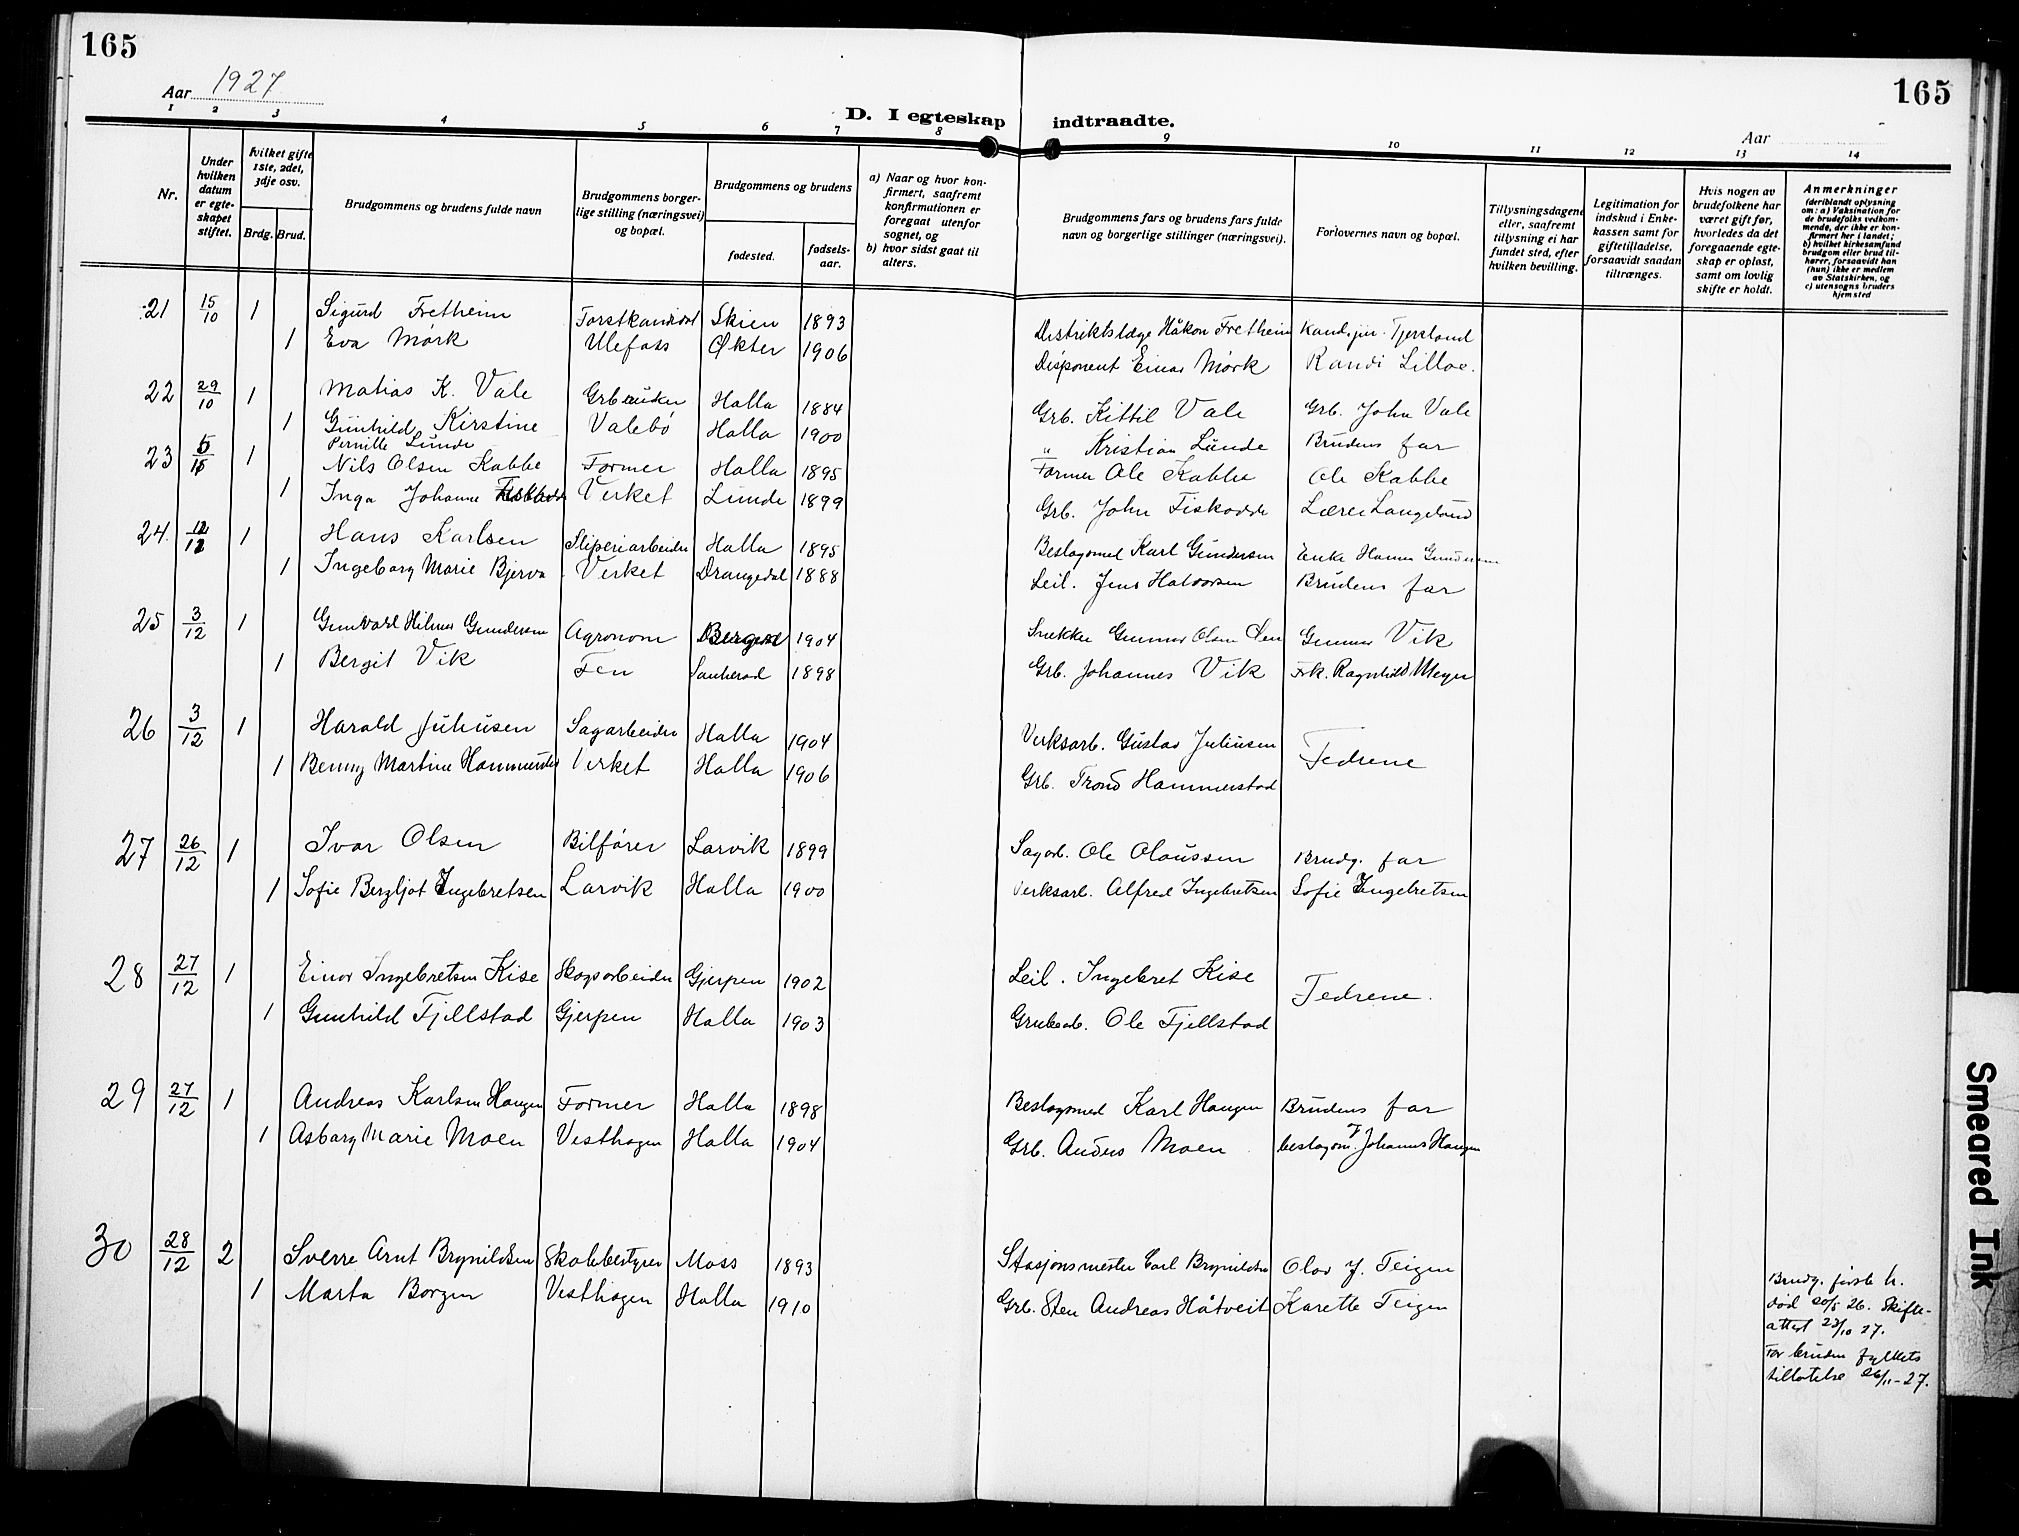 165
165
Aar 1927
D. I egteskap indtraadte.
Aar
1 2 3 4 5 6 7 8 9 10 11 12 13 14
Nr.
Under hvilken datum er egte-skapet stiftet.
hvilket gifte 1ste, 2det, 3dje osv.
Brdg. Brud.
Brudgommens og brudens fulde navn
Brudgommens borger-lige stilling (næringsvei) og bopæl.
Brudgommens og brudens
fødested.
fødsels-aar.
a) Naar og hvor kon-firmert, saafremt konfirmationen er foregaat utenfor sognet, og
b) hvor sidst gaat til alters.
Brudgommens fars og brudens fars fulde navn og borgerlige stillinger (næringsvei).
Forlovernes navn og bopæl.
Tillysningsdagene eller, saafremt tillysning ei har fundet sted, efter hvilken bevilling.
Legitimation for indskud i Enke-kassen samt for giftetilladelse, forsaavidt saadan tiltrænges.
Hvis nogen av brudefolkene har været gift før, hvorledes da det foregaaende egte-skap er opløst, samt om lovlig skifte er holdt.
Anmerkninger (deriblandt oplysning om: a) Vaksination for de brudefolks vedkom-mende, der ikke er kon-firmert her i landet; b) hvilket kirkesamfund brudgom eller brud til-hører, forsaavidt han (hun) ikke er medlem av Statskirken, og c) utensogns bruders hjemsted
21 15/10 1 Sigurd Fretheim Forstkandidat Skien 1893 Distriktslæge Håkon Fretheim Kand. jur. Tjersland
1 Eva Mørk Ulefoss Økter 1906 Disponent Einar Mørk Randi Lilloe.
22 29/10 1 Matias K. Vale Grbruker Holla 1884 Grb. Kittil Vale Grb. John Vale
1 Gunhild Kirstine Pernille Lunde Valebø Holla 1900 " Kristian Lunde Brudens far
23 5/11 1 Nils Olsen Kabbe Former Holla 1895 Former Ole Kabbe Ole Kabbe
1 Inga Johanne Verket Lunde 1899 Grb. John Fiskodde Lærer Langeland
24. 12/12 1 Hans Karlsen Sliperiarbeider Holla 1895 Beslagsmed Karl Gundersen Enke Hanna Gundersen
1 Ingeborg Marie Bjerva Verket Drangedal 1888 Leil. Jens Halvorsen Brudens far
25 3/12 1 Gunvald Hilmar Gundersen Agronom Bergen 1904 Snekker Gunnar Olsen Gunnar Vik
1 Bergit Vik Fen Sauherad 1898 Grb. Johannes Vik Frk. Ragnhild Meyer
26 3/12 1 Harald Juliusen Sagarbeider Holla 1904 Verksarb. Gustav Juliusen Fedrene
1 Benny Martine Hammerstad Verket Holla 1906 Grb. Trond Hammerstad
27 26/12 1 Ivar Olsen Bilfører Larvik 1899 Sagarb. Ole Olaussen Brudg. far
1 Sofie Bergljot Ingebretsen Larvik Holla 1900 Verksarb. Alfred Ingebretsen Sofie Ingebretsen
28 27/12 1 Einar Ingebretsen Kise Skogsarbeider Gjerpen 1902 Leil. Ingebret Kise Fedrene.
1 Gunhild Fjellstad Gjerpen Holla 1903 Grubearb. Ole Fjellstad
29 27/12 1 Andreas Karlsen Haugen Former Holla 1898 Beslagsmed Karl Haugen Brudens far
1 Asborg Marie Moen Vesthagen Holla 1904 Grb. Anders Moen beslagsm. Johannes Haugen
30 28/12 2 Sverre Arnt Brynildsen Skolebestyrer Moss 1893 Stasjonsmester Carl Brynildsen Olav J. Teigen
1 Marta Borgen Vesthagen Holla 1910 Grb. Sten Andreas Håtveit Karette Teigen
Brudg. første h. død 20/5 26. Skifte-attest 23/10 27.
For bruden fylkets tillatelse 26/11-27.
Smeared Ink